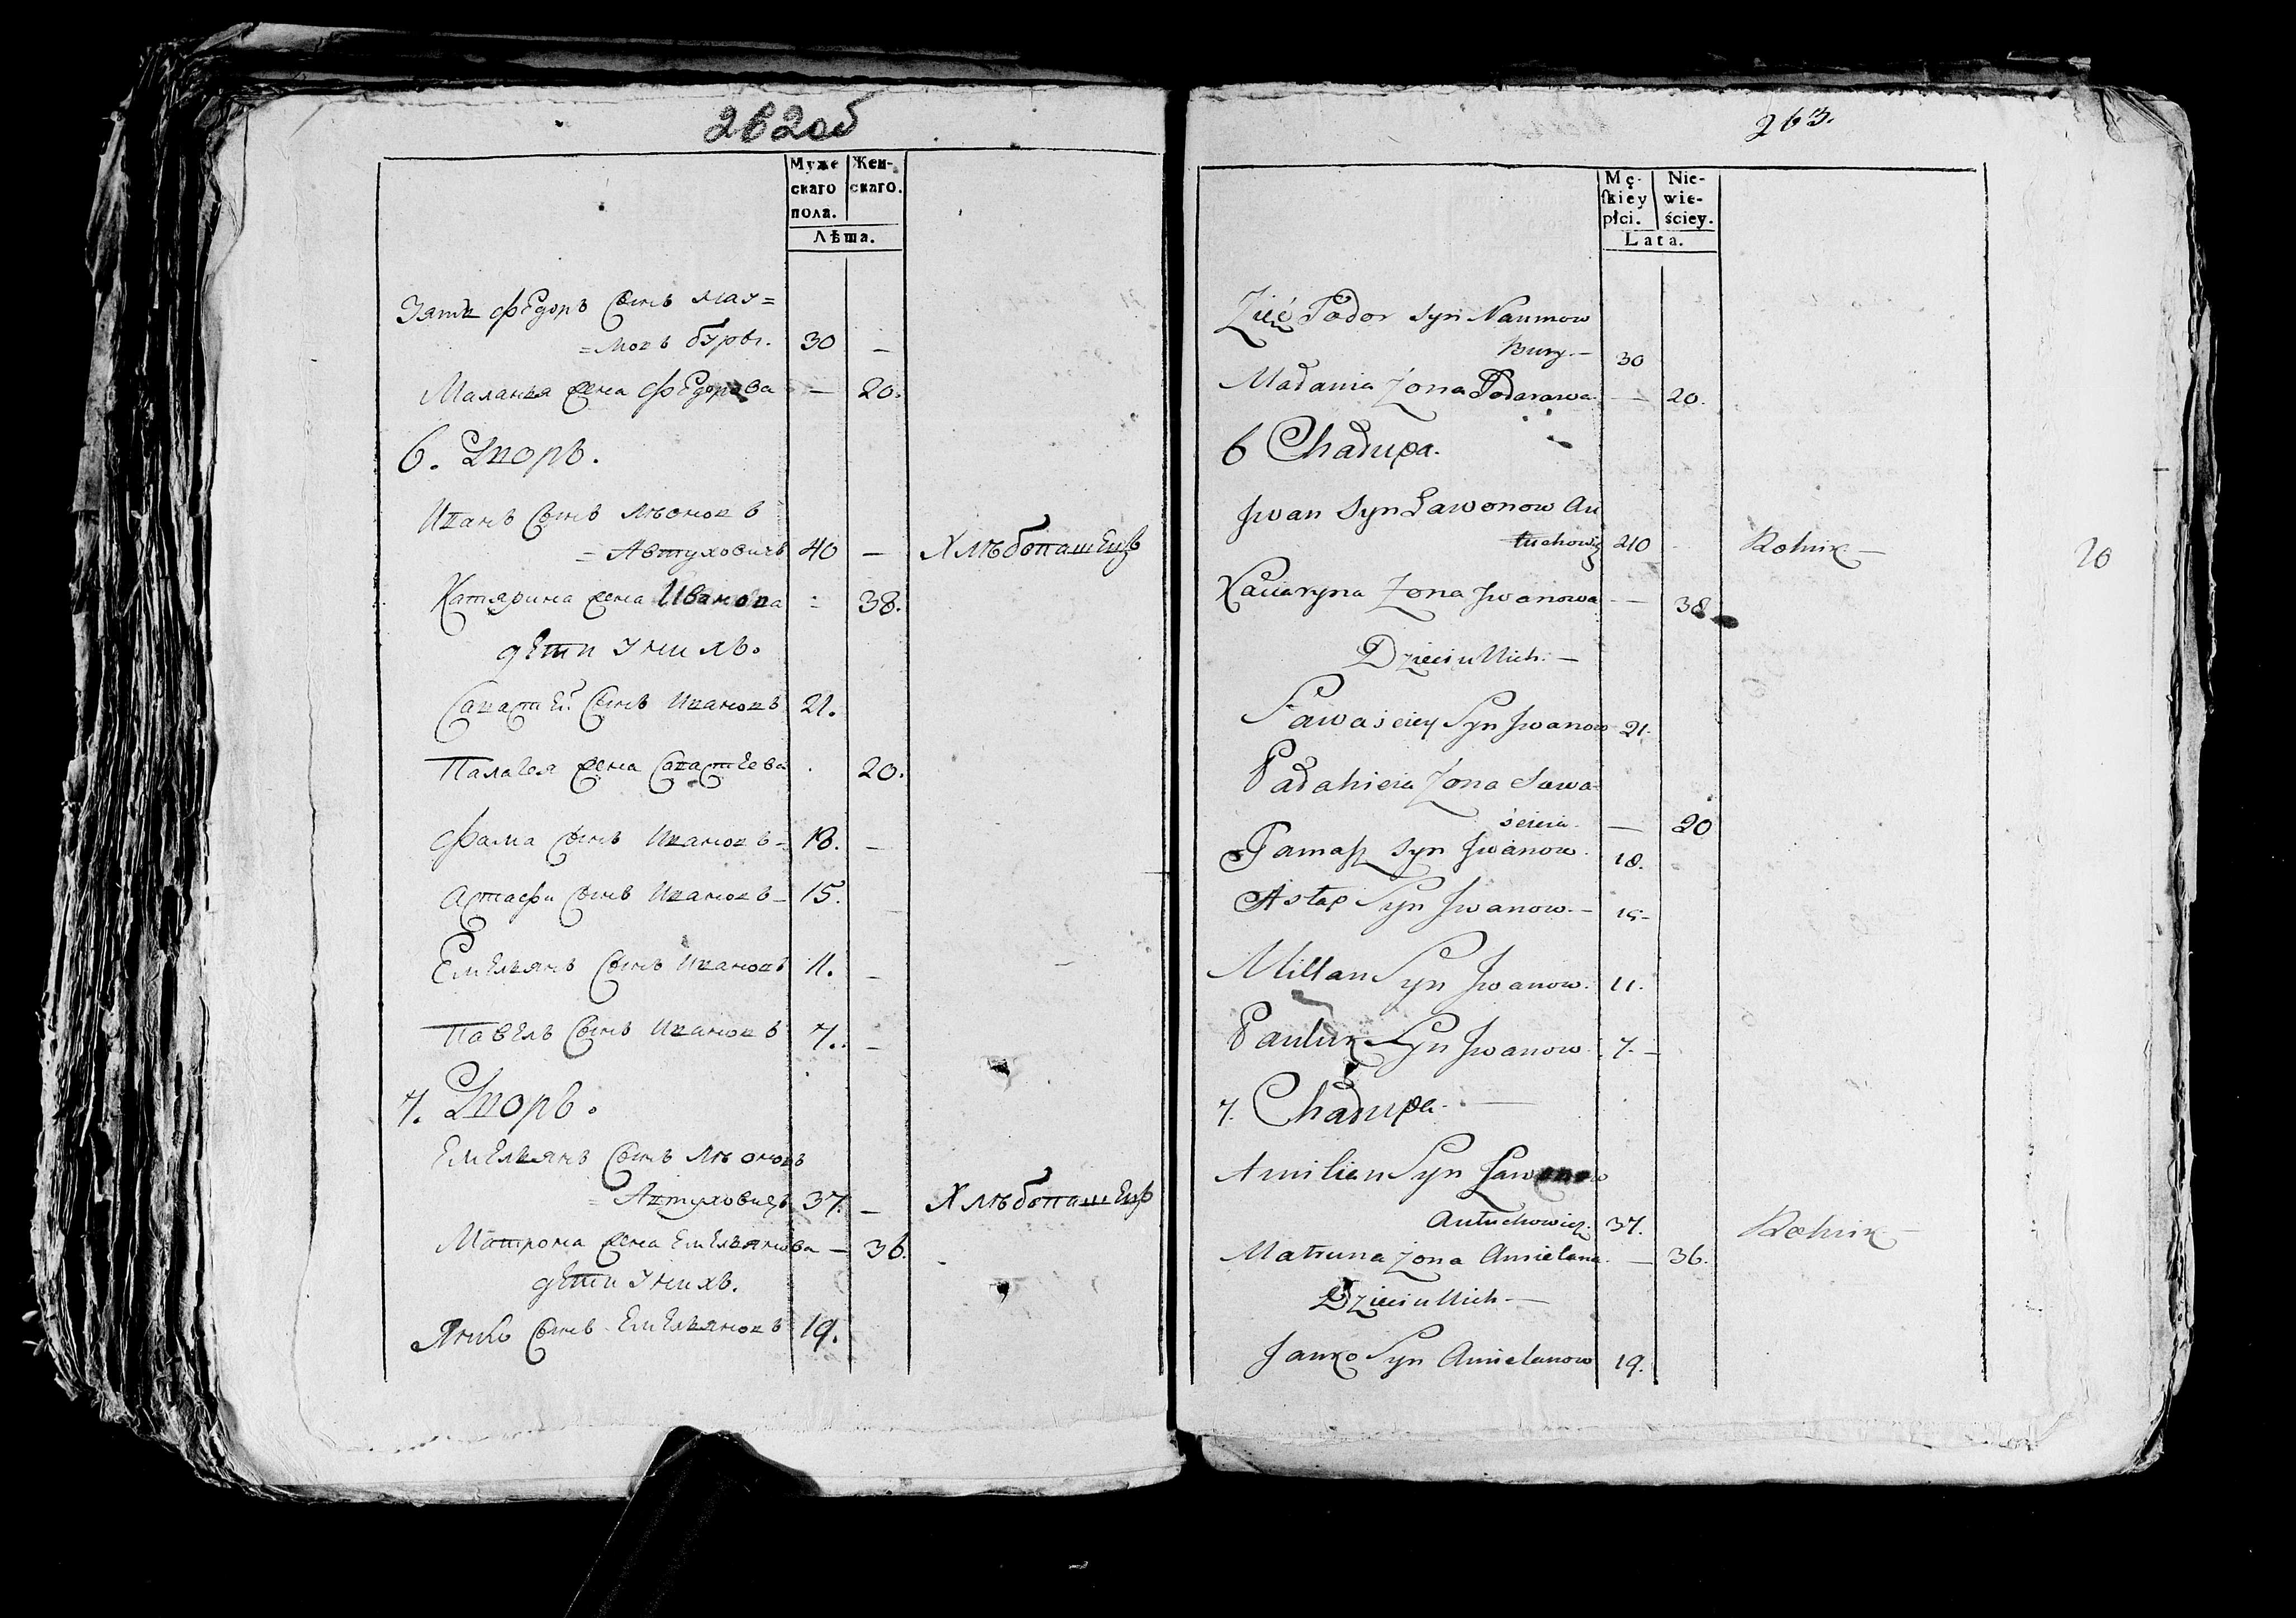 262об
Муже
скаго
пола.
Жен-
скаго.
Лѣта.
Зять Федоръ Сынъ Нау=
=мовъ буры. 30 —
Маланья жена Федорова — 20.
6. Дворъ.
Иванъ Сынъ Лѣоновъ
=Автуховичъ 40 — Хлѣбопашецъ
Катярина жена Иванова - 38.
дети у нихъ.
Савастей Сынъ Ивановъ 21.
Палагея жена Савастева 20.
Фама Сынъ Ивановъ - 18. —
Астафи Сынъ Ивановъ - 15.
Емельянъ Сынъ Ивановъ 11. —
Павелъ Сынъ Ивановъ 7. —
7. Дворъ.
Емельянъ Сынъ Лѣоновъ
=Автуховичъ 37. — Хлѣбопашецъ
Матрона жена Емельянова — 36.
дети у нихъ.
Янко Сынъ Емельяновъ 19.
263.
Mę-
ſkiey
płci.
Nie-
wie-
ściey.
Lata.
Zięć Fador syn Naumow
Bury.— 30
Małania Żona Fadarowa — 20.
6 Chałupa.
Jwan Syn Lawonow Au
tuchowicz 40 Rolnik —
Kaciaryna Żona Jwanowa — 38
Dzieci u Nich. —
Sawaściey Syn Jwanow 21.
Pałahieia Żona Sawa-
ścieia. — 20
Tamasz syn Jwanow. 18.
Astap Syn Jwanow. — 15-
Millan Syn Jwanow. 11.
Pauluk Syn Jwanow 7. —
7. Chałupa. —
Amilian Syn Lawonow
Autuchowicz. 37. Rolnik —
Matruna Żona Amielana. — 36.
Dzieci u Nich —
Janko Syn Amielanow 19.